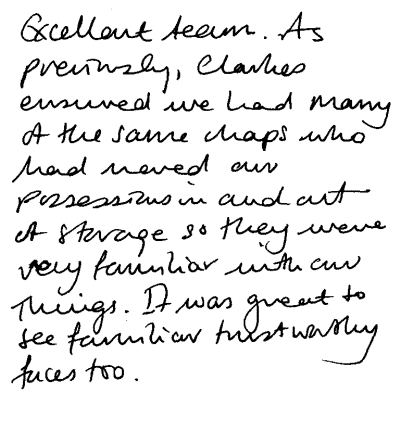 Excellent team. As
previously, Clarkes
ensured we had many
of the same chaps who
had moved our
possessions in and out
of storage so they were
very familiar with our
things. It was great to
see familiar trustworthy
faces too.